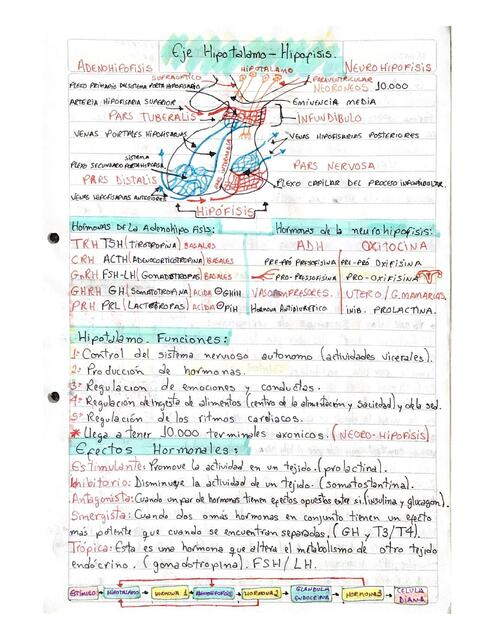 Eje Hipotalamo - Hipofisis.
ADENOHIPOFISIS
HIPOTALAMO
NEUROHIPOFISIS
SUPRAOPTICO
PARAVENTRICULAR
PLEXO PRIMARIO DEL SISTEMA PORTA HIPOFISARIO
NEORONEOS 10.000
ARTERIA HIPOFISARIA SUPERIOR
EMINENCIA MEDIA
PARS TUBERALIS
INFUNDIBULO
VENAS PORTALES HIPOFISARIAS
VENAS HIPOFISARIAS POSTERIORES
SISTEMA
PLEXO SECUNDARIO PORTAHIPOFISIS
PARS INTERMEDIA
PARS NERVOSA
PARS DISTALIS
PLEXO CAPILAR DEL PROCESO INFUNDIBULAR.
VENAS HIPOFISARIAS ANTERIORES
HIPOFISIS
Hormonas DE LA Adenohipofisis:
Hormonas de la neurohipofisis:
TRH TSH (TIROTROPINA) BASALES
ADH OXITOCINA
CRH ACTH (ADENOCORTICOTROPAS) BASALES
PRE-PRÓ PRESOFISINA PRE-PRÓ OXIFISINA
GnRH FSH-LH (GONADOTROPAS) BASALES
PRO-PRESOFISINA PRO-OXIFISINA
GHRH GH (SOMATOTROPINA) ACIDA ⊖GHIH
VASOCOMPRESORES. UTERO/G. MAMARIAS
PRH PRL (LACTOTROPAS) ACIDA ⊖PIH
HORMONA ANTIDIURETICO INIB. PROLACTINA.
Hipotalamo. Funciones:
1º Control del sistema nervioso autonomo (actividades vicerales).
2º Producción de hormonas.
3º Regulacion de emociones y conductas.
4º Regulación de Ingesta de alimentos (centro de la alimentación y saciedad) y de la sed.
5º Regulación de los ritmos cardiacos.
* Llega a tener 10.000 terminales axonicos. (NEORO-HIPOFISIS)
Efectos Hormonales:
Estimulante: Promove la actividad en un tejido. (prolactina).
Inhibitorio: Disminuye la actividad de un tejido. (somatostantina).
Antagonista: Cuando un par de hormonas tienen efectos opuestos entre si. (insulina y glucagon).
Sinergista: Cuando dos o más hormonas en conjunto tienen un efecto
más potente que cuando se encuentran separadas. (GH y T3/T4).
Trópica: Esta es una hormona que altera el metabolismo de otro tejido
endócrino. (gonadotropina). FSH/LH.
ESTÍMULO HIPOTALAMO HORMONA 1 ADENOHIPOFISIS HORMONA 2 GLANDULA ENDOCRINA HORMONA 3 CELULA DIANA